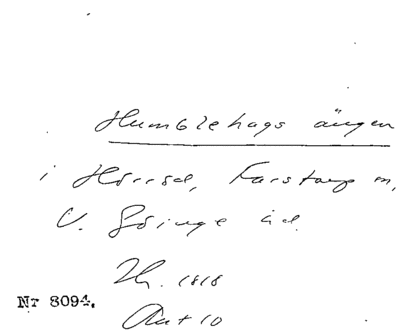 Humblehags ängen
i Hörröd, Farstorp m,
V. Göinge hd.
Th. 1818
Akt 10
Nr 8094.